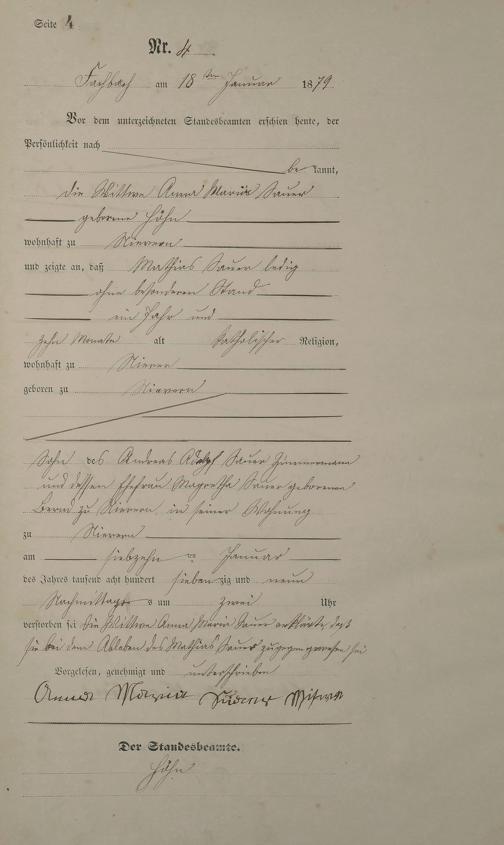 Seite 4
Nr. 4
Fachbach am 18ten Januar 1879.
Vor dem unterzeichneten Standesbeamten erschien heute, der
Persönlichkeit nach
be kannt,
die Wittwe Anna Maria Sauer
geborene Höhn
wohnhaft zu Nievern
und zeigte an, daß Mathias Sauer ledig
ohne besonderen Stand
ein Jahr und
zehn Monate alt katholischer Religion,
wohnhaft zu Nievern
geboren zu Nievern
Sohn des Andreas Adolph Sauer Zimmermann
und dessen Ehefrau Magretha Sauer geborenen
zu Nievern, in seiner Wohnung
zu Nievern
am siebzehn ten Januar
des Jahres tausend acht hundert sieben zig und neun
Nachmittags um zwei Uhr
verstorben sei die Wittwe Anna Maria Sauer erklärte, daß
sie bei dem Ableben des Mathias Sauer zugegen gewesen sei
Vorgelesen, genehmigt und unterschrieben
Anna Maria
Der Standesbeamte.
Höhn